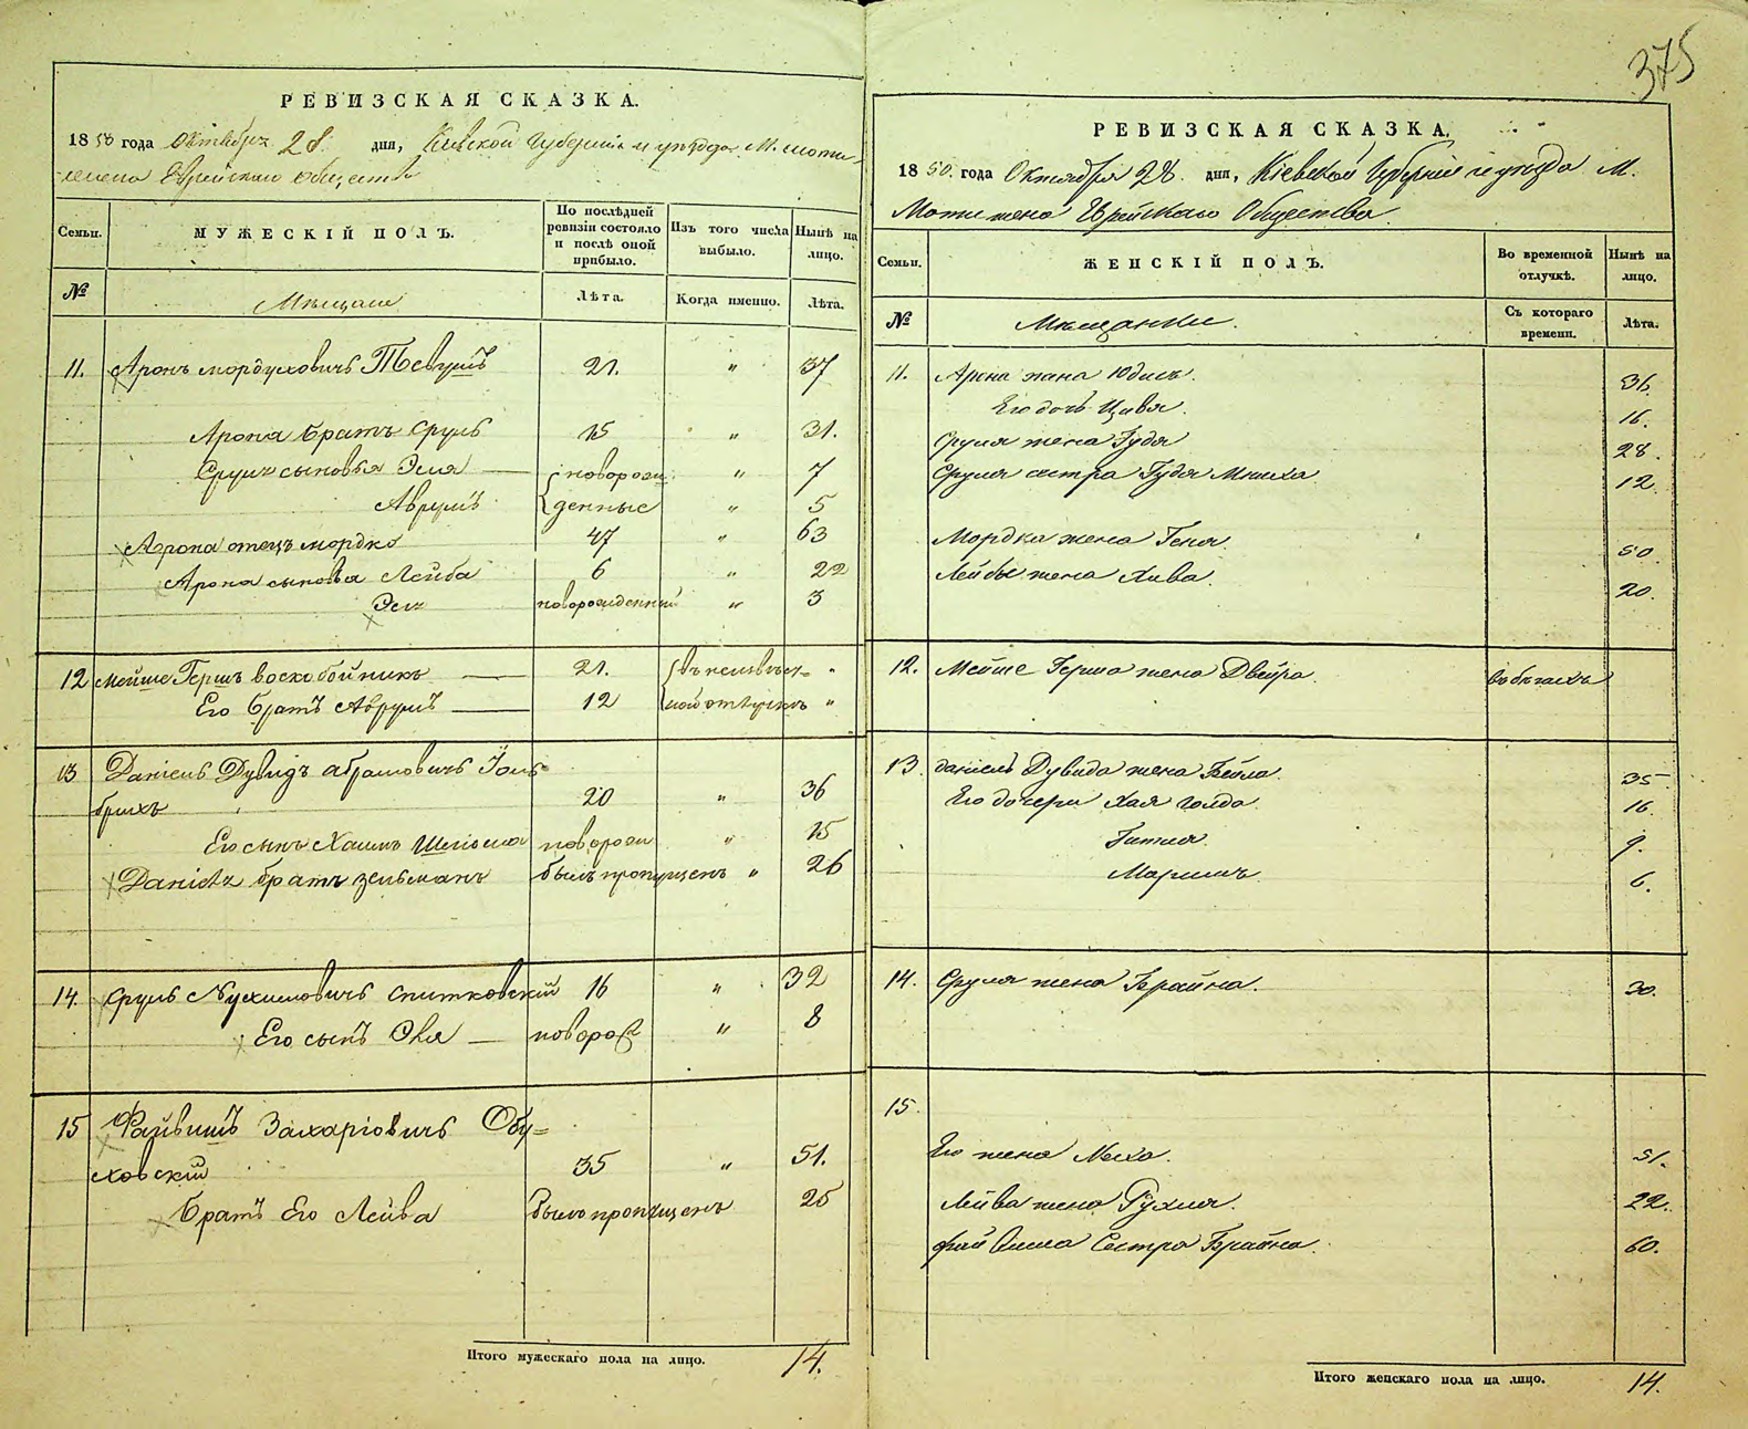 375
РЕВИЗСКАЯ СКАЗКА.
1850 года Октября 28 дня, Киевской Губерніи и уѣзда М. Моти-
жена Еврейскаго общества
Семьи.
МУЖЕСКІЙ ПОЛЪ.
По послѣдней ревизіи состояло и послѣ оной прибыло.
Изъ того числа выбыло.
Нынѣ на лицо.
№
Мѣщане
Лѣта.
Когда именно.
Лѣта.
11. Аронъ Мордуховичъ 21. " 37
Арона братъ Сруль 15 " 31.
Сруля сыновья Эля новорож " 7
Аврумъ денные " 5
Арона отецъ Мордко 47 " 63
Арона сыновья Лейба 6 " 22
Эля новорожденный " 3
12 Мойше Герш воскобойникъ 21. въ неизвѣст- "
Его братъ Аврумъ 12 ной отлучкѣ "
13 Даніель Дувидъ Абрамовичъ Голь-
брихъ 20 " 36
Его сынъ Хаимъ Шліома новорож " 15
Даніеля братъ Зельманъ былъ пропущенъ " 26
14. Сруль Нухимовичъ Спитковскій 16 " 32
Его сынъ Овя новорож " 8
15 Файвишъ Захаріовичъ Обу-
ховскій 35 " 51.
Братъ Его Лейва былъ пропущенъ 25
Итого мужескаго пола на лицо. 14.
РЕВИЗСКАЯ СКАЗКА.
1850. года Октября 28. дня, Кіевской Губерніи и уѣзда М.
Мотижена Еврейскаго Общества
Семьи.
ЖЕНСКІЙ ПОЛЪ.
Во временной отлучкѣ.
Нынѣ на лицо.
№
Мѣщанки.
Съ котораго времени.
Лѣта.
11. Арона жена Юдись. 36.
Его дочь Цивя. 16.
Сруля жена Гудя 28.
Сруля сестра Гудя Мниха 12.
Мордка жена Геня. 50.
Лейбы жена Хива. 20.
12. Мойше Герша жена Двейра. въ бѣгахъ
13. Даніель Дувида жена Бейла. 35.
Его дочери Хая Голда. 16.
Гитля. 9.
Маримъ. 6.
14. Сруля жена Брайна. 30.
15.
Его жена Меха. 51.
Лейва жена Рухля. 22.
Фай Виша Сестра Брайна. 60.
Итого женскаго пола на лицо. 14.